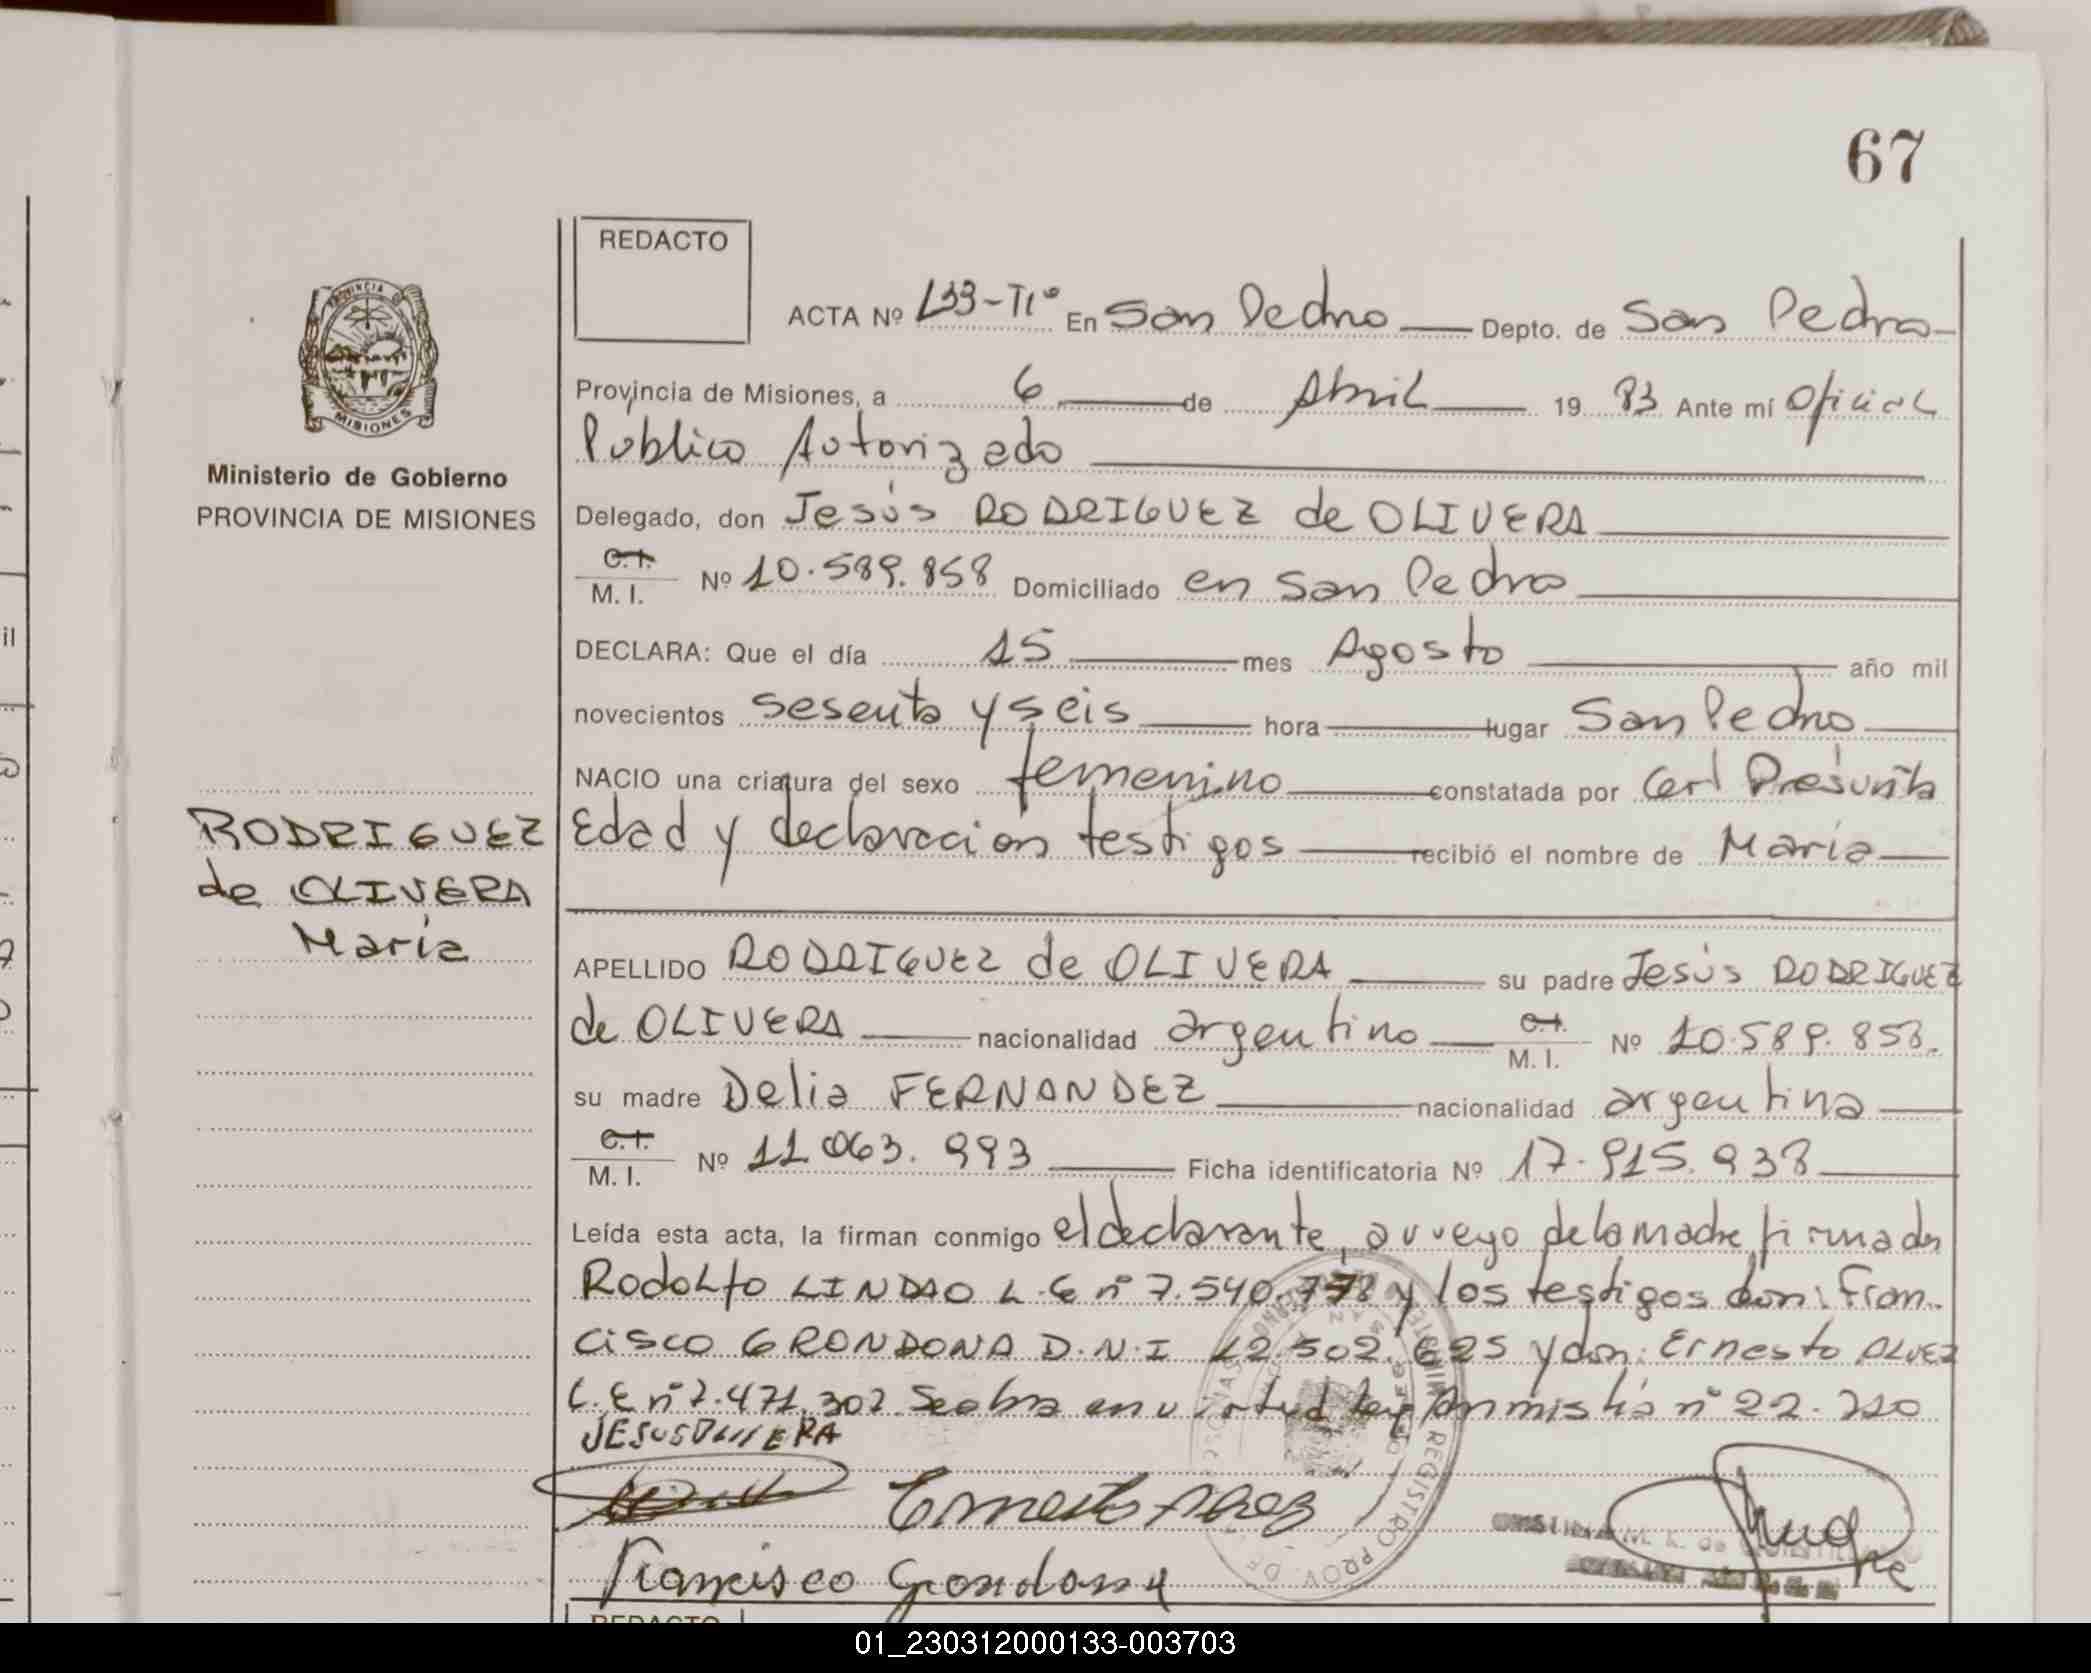 67
REDACTO
ACTA Nº 133-TIº En San Pedro Depto. de San Pedro
Provincia de Misiones, a 6 de Abril 19 83 Ante mí Oficial
Público Autorizado
Delegado, don Jesús RODRIGUEZ de OLIVERA
C.I. M. I. Nº 10.589.858 Domiciliado en San Pedro
DECLARA: Que el día 15 mes Agosto año mil
novecientos sesenta y seis hora lugar San Pedro
NACIO una criatura del sexo femenino constatada por Cert Presunta
Edad y declaracion testigos recibió el nombre de María
APELLIDO RODRIGUEZ de OLIVERA su padre Jesús RODRIGUEZ
de OLIVERA nacionalidad argentino C.I. M. I. Nº 10.589.858.
su madre Delia FERNANDEZ nacionalidad argentina
C.I. M. I. Nº 11.063.993 Ficha identificatoria Nº 17.915.938
Leída esta acta, la firman conmigo el declarante, a ruego de la madre, firmado
Rodolfo LINDAO L.E nº 7.540.778 y los testigos don: Fran-
cisco GRONDONA D.N.I 12.502.625 y don: Ernesto ALVEZ
L.E nº 7.471.307. Se labra en virtud ley Anmistía nº 22.210
JESUS OLIVERA
Ernesto Alvez
Francisco Grondona
PROVINCIA DE
MISIONES
Ministerio de Gobierno
PROVINCIA DE MISIONES
RODRIGUEZ
de OLIVERA
María
REGISTRO PROV. DE
REDACTO
01_230312000133-003703